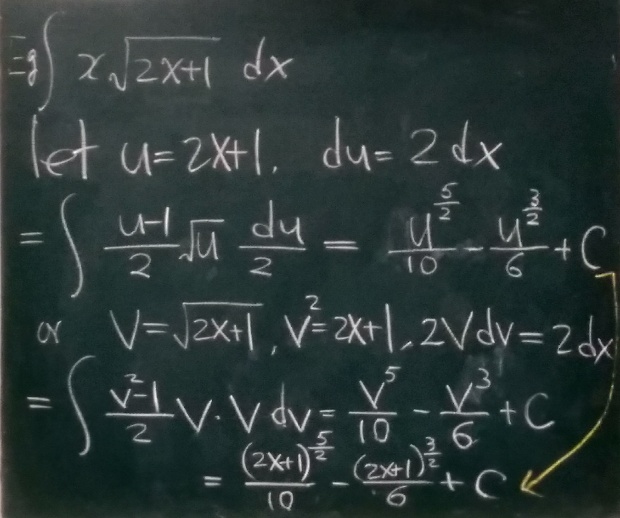 Eg ∫ x√(2x+1) dx
let u=2x+1, du=2dx
= ∫ (u-1)/2 √u du/2 = u^(5/2)/10 - u^(3/2)/6 + C
or V=√(2x+1), V²=2x+1, 2Vdv=2dx
= ∫ (v²-1)/2 V·V dv = V⁵/10 - V³/6 + C
= (2x+1)^(5/2)/10 - (2x+1)^(3/2)/6 + C